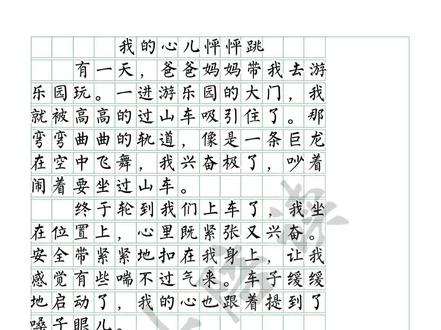 我的心儿怦怦跳
有一天，爸爸妈妈带我去游
乐园玩。一进游乐园的大门，我
就被高高的过山车吸引住了。那
弯弯曲曲的轨道，像是一条巨龙
在空中飞舞，我兴奋极了，吵着
闹着要坐过山车。
终于轮到我们上车了，我坐
在位置上，心里既紧张又兴奋。
安全带紧紧地扣在我身上，让我
感觉有些喘不过气来。车子缓缓
地启动了，我的心也跟着提到了
嗓子眼儿。